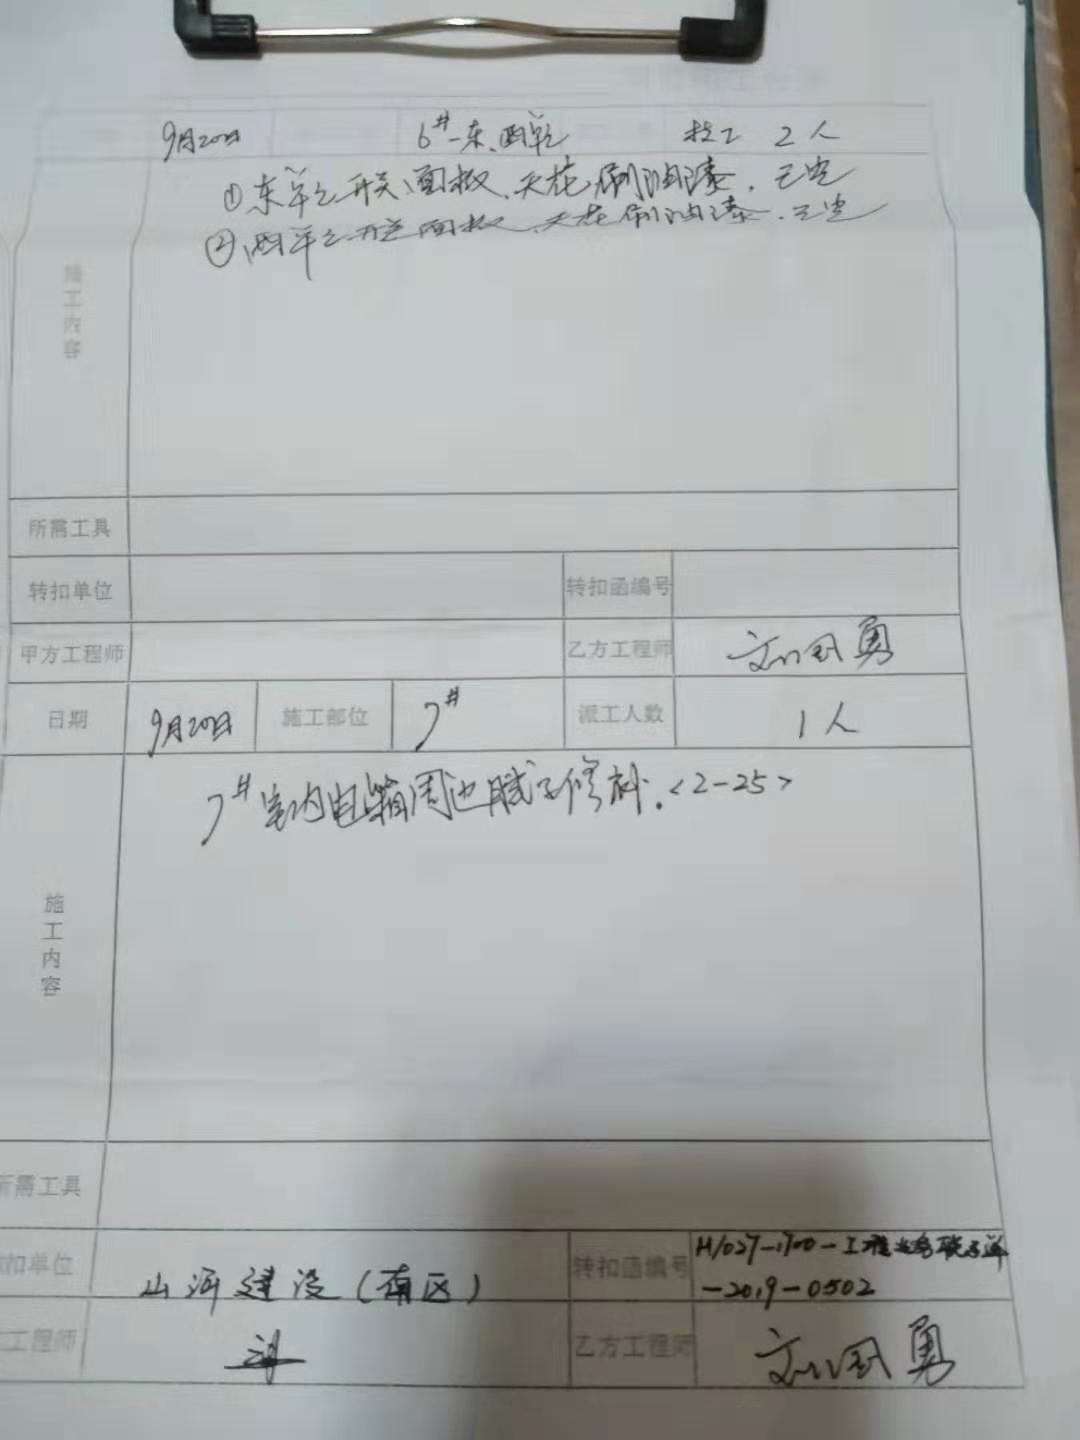 9月20日 6#-东、西单元 技工 2人
①东单元开关、面板、天花刷油漆.
②西单元开关面板、天花刷油漆.
施工内容
所需工具
转扣单位 转扣函编号
甲方工程师 乙方工程师 刘国勇
日期 9月20日 施工部位 7# 派工人数 1人
7#室内电箱周边腻子修补.<2-25>
施工内容
所需工具
扣单位 山河建设(南区) 转扣函编号 H/027-1700-工程业务联系单
-2019-0502
工程师 乙方工程师 刘国勇